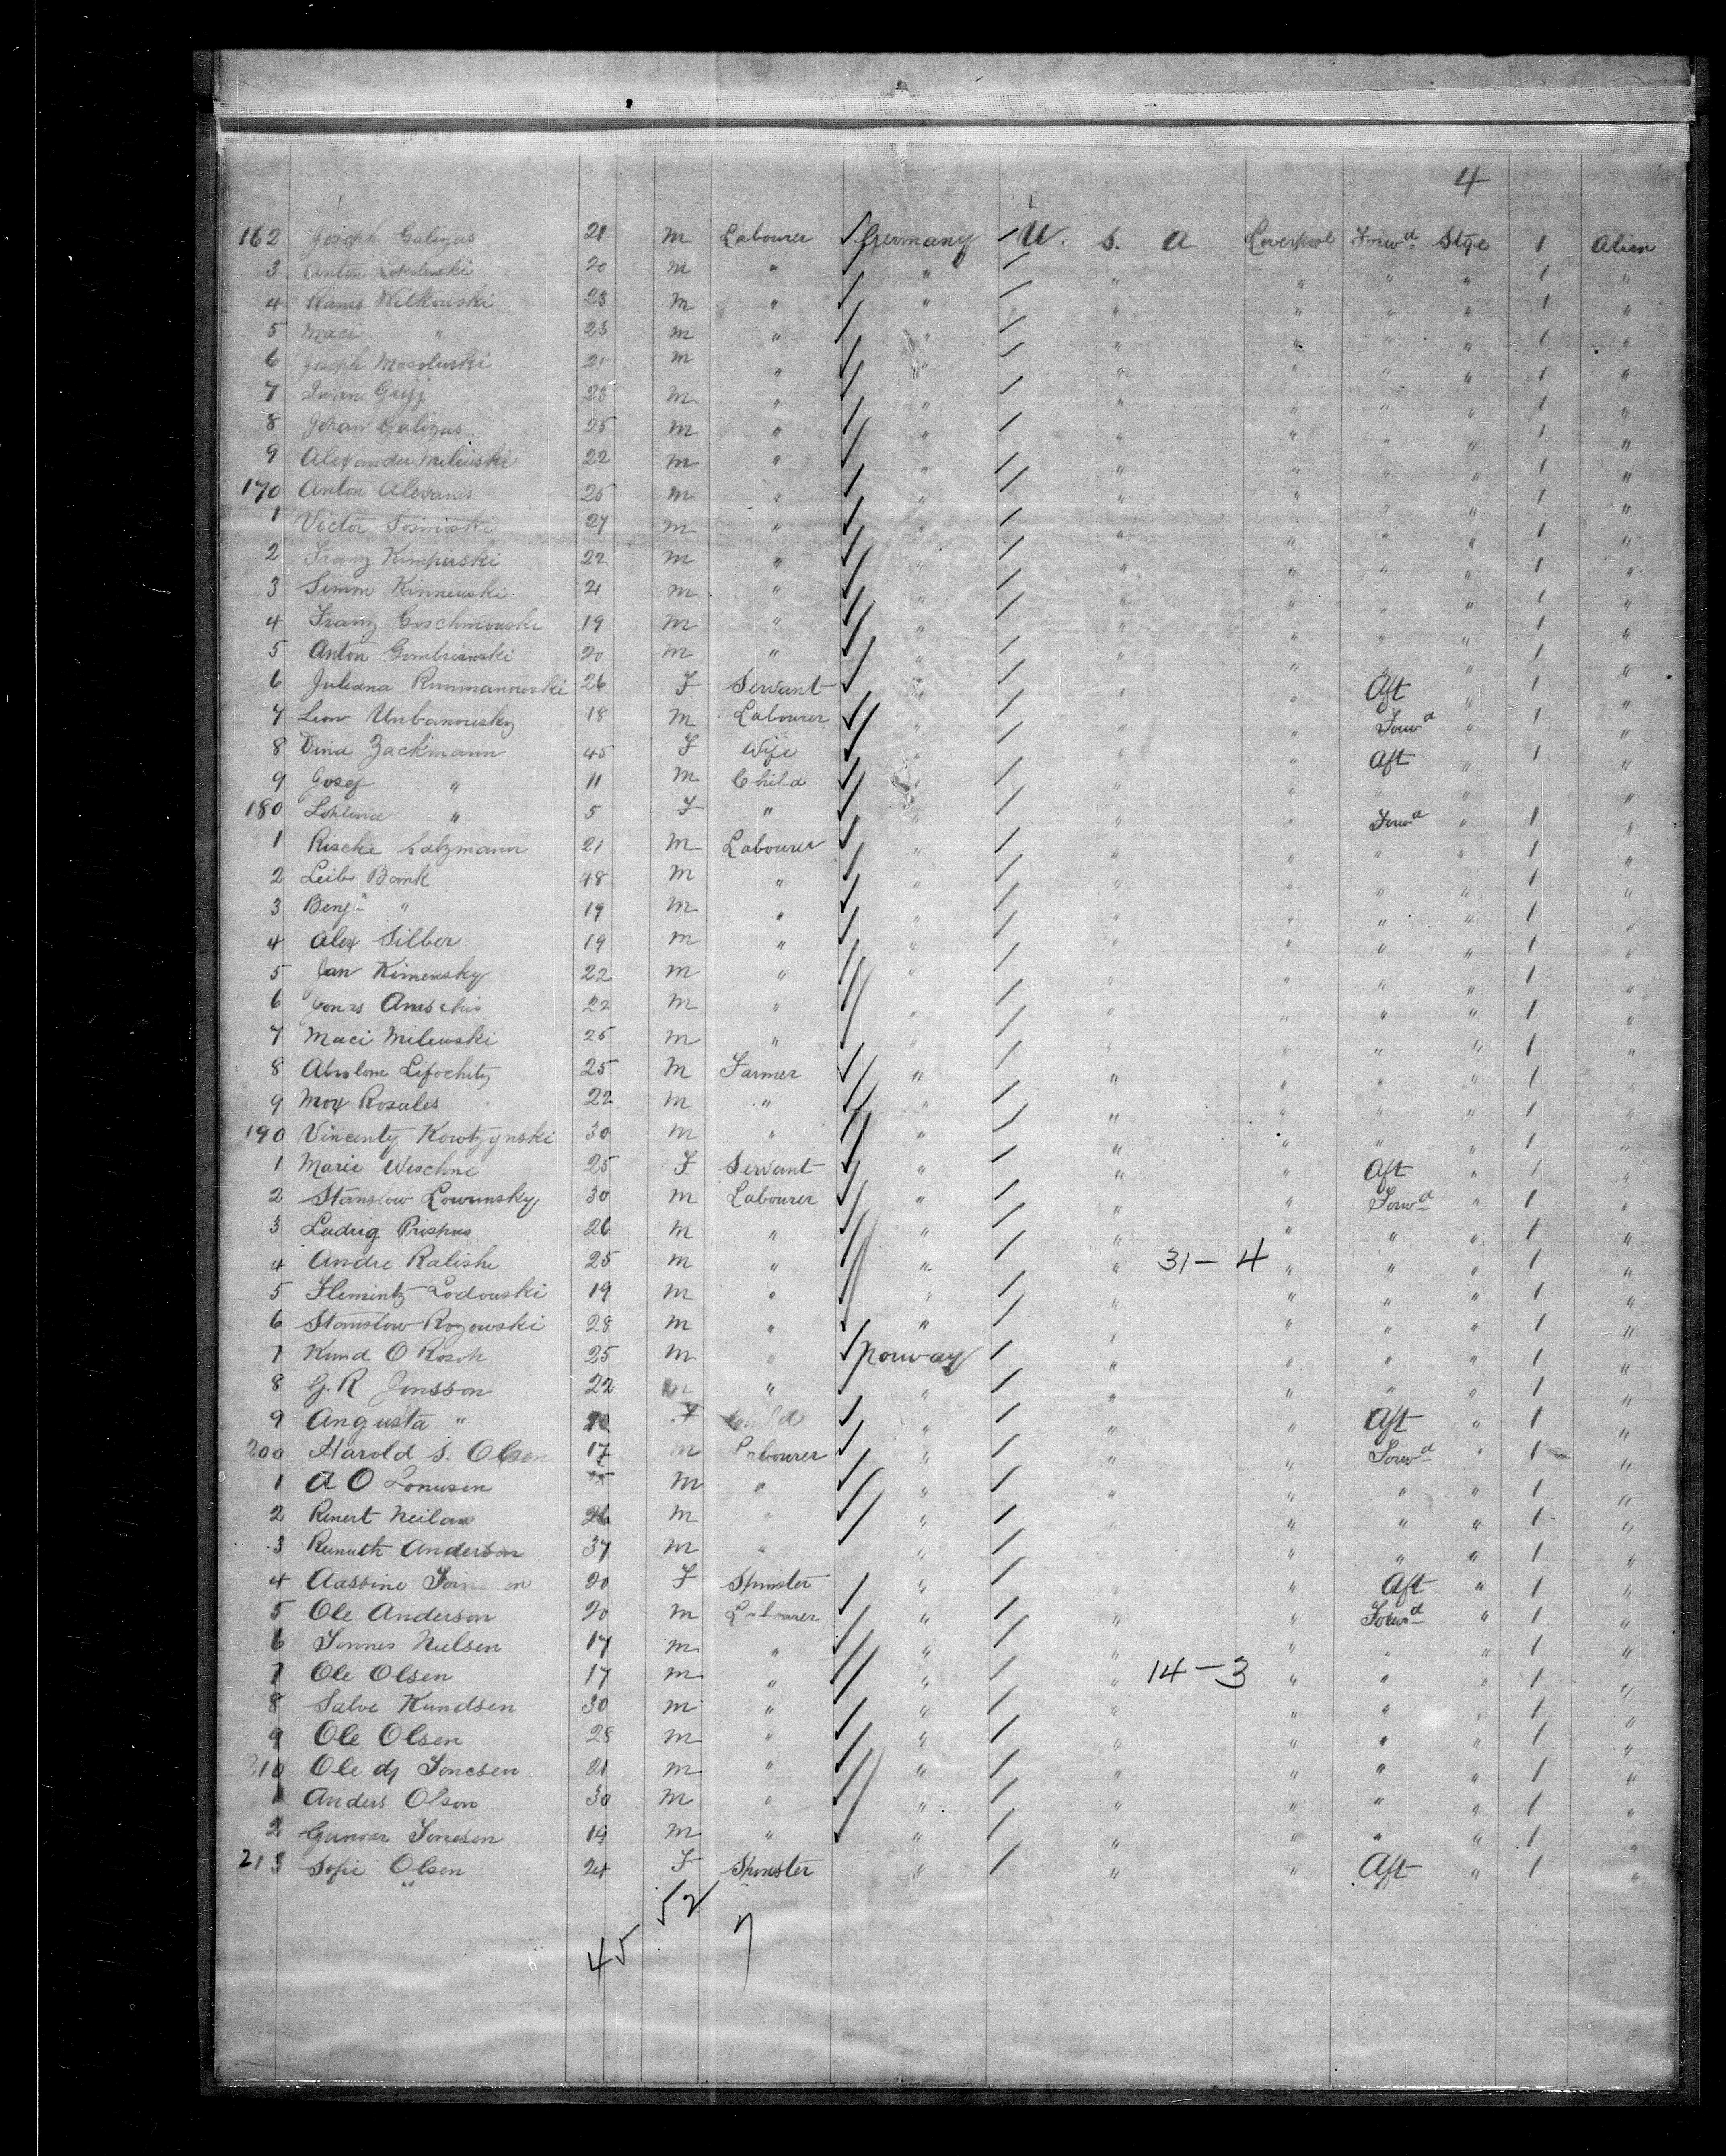 4
162 Joseph Galizus 21 m Labourer Germany U. S. A Liverpool Forwd Stge 1 Alien
3 Anton 20 m " " " " " " 1 "
4 Wilkowski 23 m " " " " " " 1 "
5 Maci " 23 m " " " " " " 1 "
6 Joseph 21 m " " " " " " 1 "
7 23 m " " " " " " 1 "
8 Johan Galizus 25 m " " " " " " 1 "
9 Alexander Milewski 22 m " " " " " " 1 "
170 Anton Alexanis 25 m " " " " " " 1 "
1 Victor 27 m " " " " " " 1 "
2 Franz Kimperski 22 m " " " " " " 1 "
3 Simon Kinnewski 21 m " " " " " " 1 "
4 Franz Goschmowski 19 m " " " " " " 1 "
5 Anton Gombriewski 20 m " " " " " " 1 "
6 Juliana Rummanowski 26 F Servant " " " Aft " 1 "
7 Leon Urbanowsky 18 m Labourer " " " Forwd " 1 "
8 Dina Zackmann 45 F Wife " " " Aft " 1 "
9 Josef " 11 m Child " " " " " "
180 " 5 F " " " " Forwd " 1 "
1 Rische Salzmann 21 m Labourer " " " " " 1 "
2 Leib Bank 48 m " " " " " " 1 "
3 Benj " 19 m " " " " " " 1 "
4 Alex Silber 19 m " " " " " " 1 "
5 Jan Kimensky 22 m " " " " " " 1 "
6 Jonas 22 m " " " " " " 1 "
7 Maci Milewski 25 m " " " " " " 1 "
8 Abslom Lifochitz 25 m Farmer " " " " " 1 "
9 Max Rosales 22 m " " " " " " 1 "
190 Vincenty Kowtzynski 30 m " " " " " " 1 "
1 Marie Weschne 25 F Servant " " " Aft " 1 "
2 Stanslow Lowunsky 30 m Labourer " " " Forwd " 1 "
3 Ludwig Prispus 26 m " " " " " " 1 "
4 Andre Raliske 25 m " " " 31-4 " " " 1 "
5 Lodowski 19 m " " " " " " 1 "
6 Stanslow Rozowski 28 m " " " " " " 1 "
7 Knud O Rosoh 25 m " Norway " " " " 1 "
8 G. R Jonsson 22 m " " " " " " 1 "
9 Angusta " F Child " " " Aft " 1 "
200 Harold S. Olsen 17 m Labourer " " " Forwd " 1 "
1 A O m " " " " " " 1 "
2 Renert Neilan 26 m " " " " " " 1 "
3 Anderson 37 m " " " " " 1 "
4 Aassine 20 F Spinster " " " Aft " 1 "
5 Ole Anderson 20 m Labourer " " " Forwd " 1 "
6 Tonnes Nielsen 17 m " " " " " " 1 "
7 Ole Olsen 17 m " " " 14-3 " " " 1 "
8 Salve Kundsen 30 m " " " " " " 1 "
9 Ole Olsen 28 m " " " " " " 1 "
210 Ole Tonesen 21 m " " " " " " 1 "
1 Anders Olson 30 m " " " " " " 1 "
2 Gunvar Tonesen 19 m " " " " " " 1 "
213 Sofie Olsen 24 F Spinster " " " Aft " 1 "
52
7
45